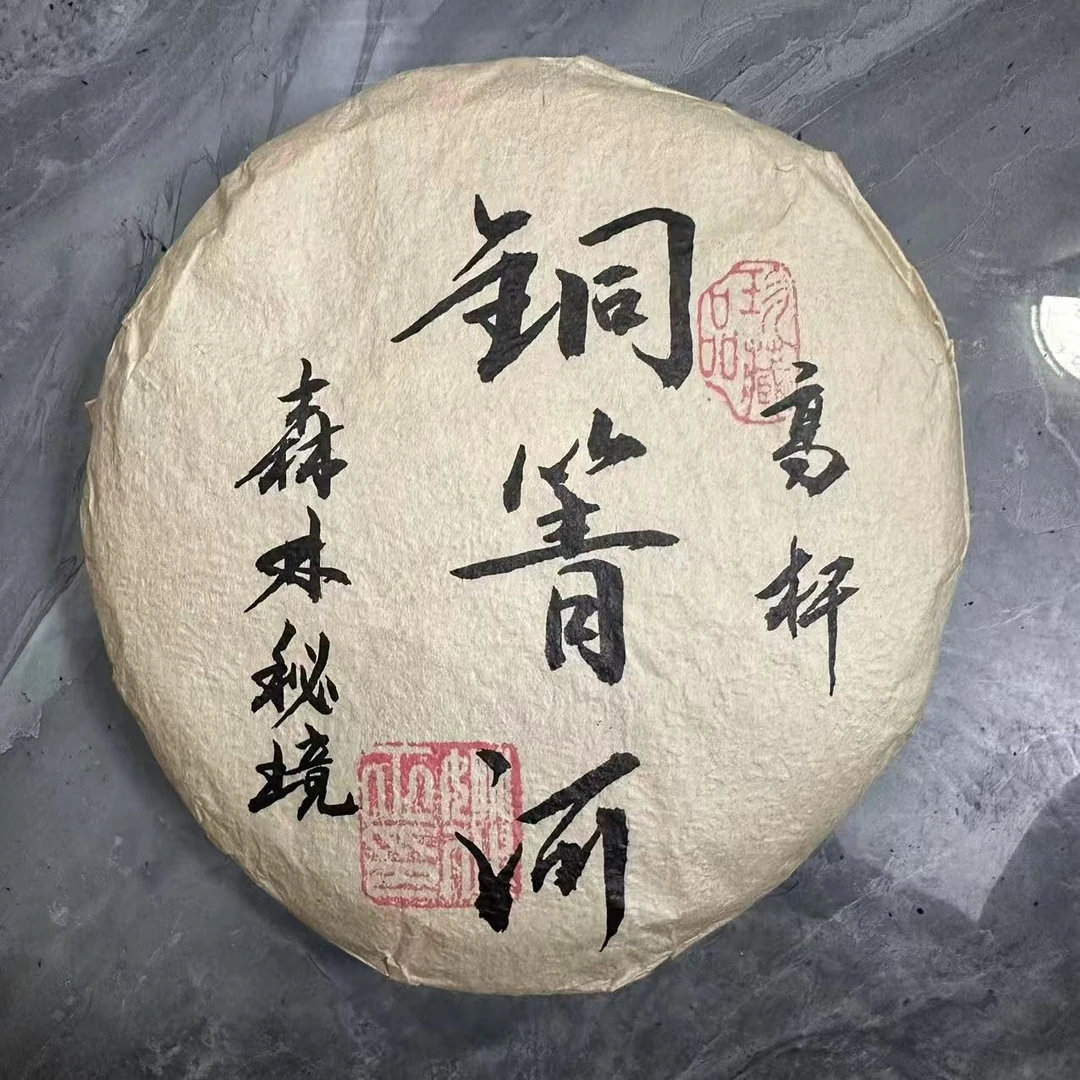 珍藏品
高杆
銅箐河
森林秘境